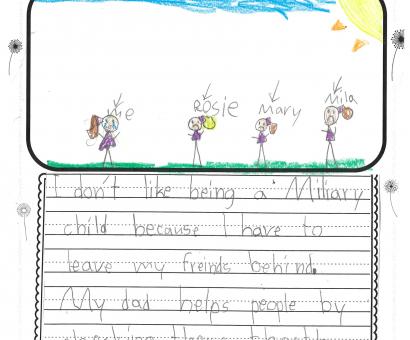 Me Rosie Mary Mila
I don't like being a Miliary
child because I have to
leave my freinds behind.
My dad helps people by